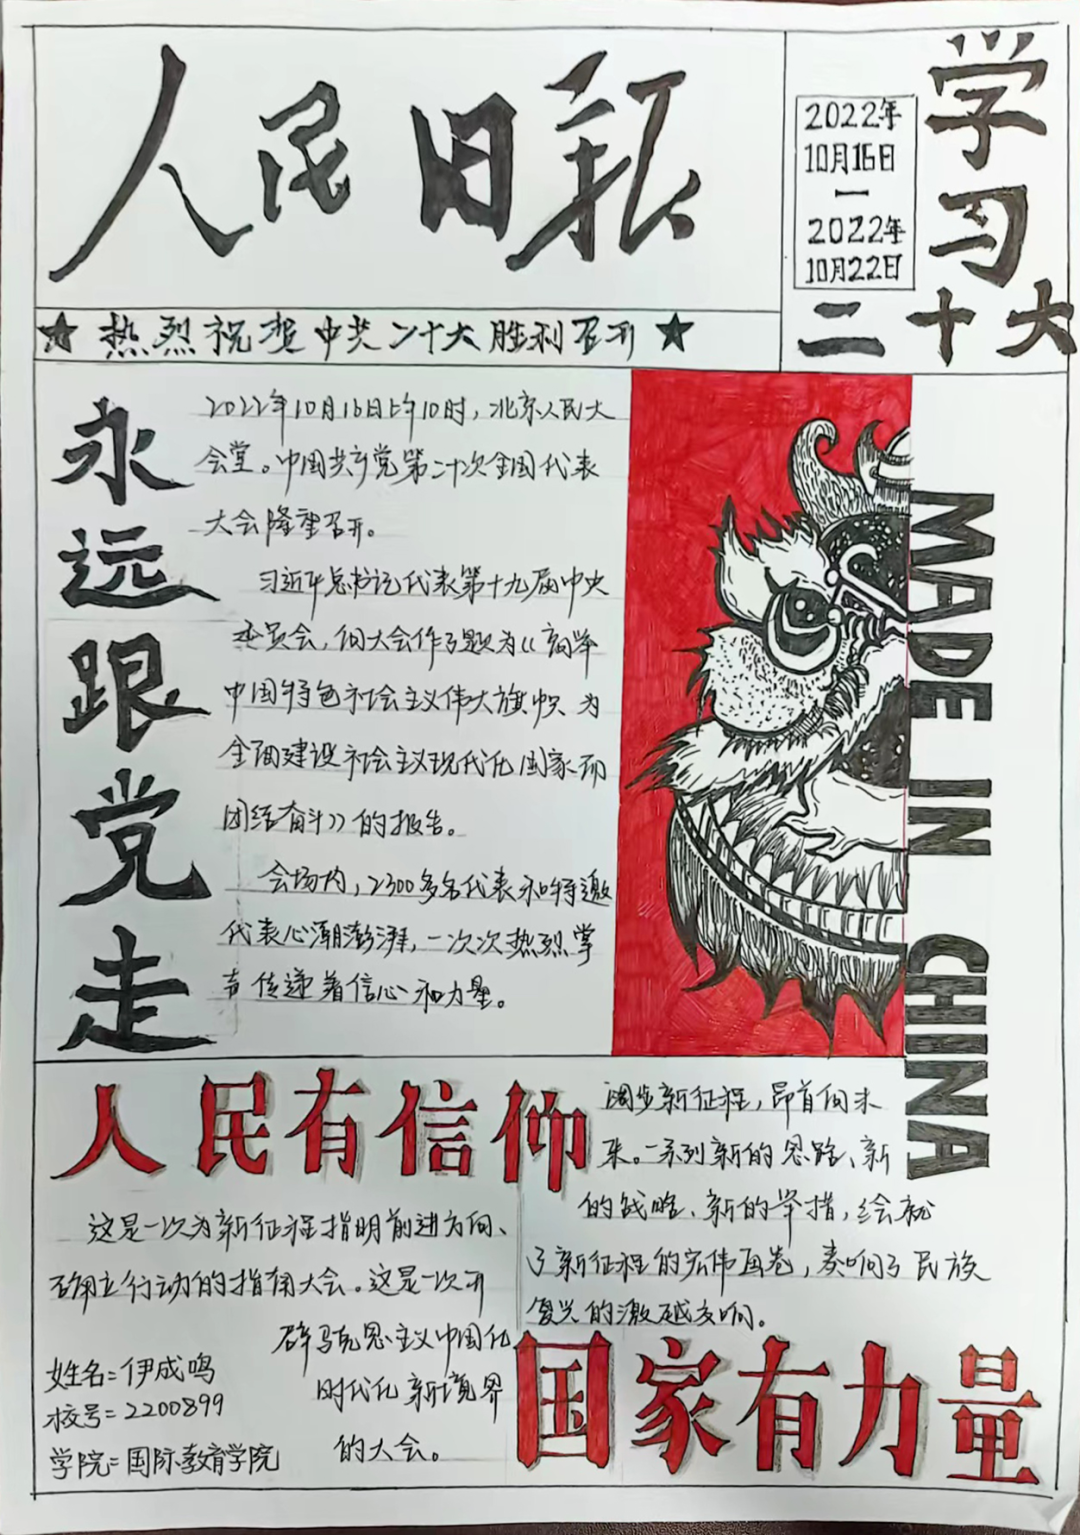 人民日报
学习
二十大
2022年
10月16日
—
2022年
10月22日
★热烈祝贺中共二十大胜利召开★
永远跟党走
2022年10月16日上午10时，北京人民大
会堂。中国共产党第二十次全国代表
大会隆重召开。
习近平总书记代表第十九届中央
委员会，向大会作了题为《高举
中国特色社会主义伟大旗帜 为
全面建设社会主义现代化国家而
团结奋斗》的报告。
会场内，2300多名代表和特邀
代表心潮澎湃，一次次热烈掌
声传递着信心和力量。
MADE IN CHINA
人民有信仰
这是一次为新征程指明前进方向、
确立行动的指南大会。这是一次开
辟马克思主义中国化
时代化新境界
的大会。
阔步新征程，昂首向未
来。一系列新的思路、新
的战略、新的举措，绘就
了新征程的宏伟画卷，奏响了民族
复兴的激越交响。
国家有力量
姓名=伊成鸣
校号=2200899
学院=国际教育学院